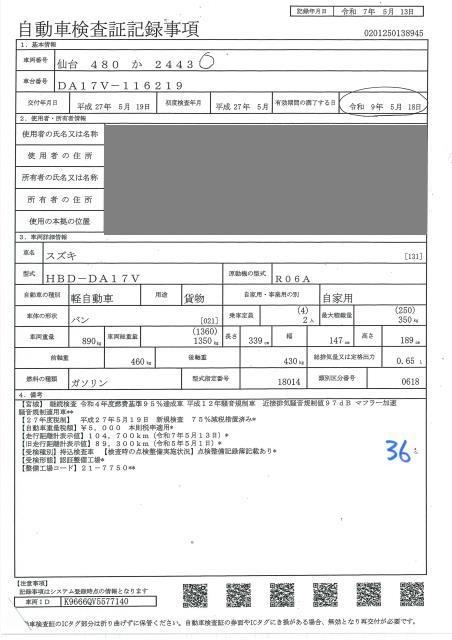 記録年月日 令和 7年 5月 13日
自動車検査証記録事項 0201250138945
1. 基本情報
車両番号 仙台 480 か 2443
車台番号 DA17V-116219
交付年月日 平成 27年 5月 19日 初度検査年月 平成 27年 5月 有効期間の満了する日 令和 9年 5月 18日
2. 使用者・所有者情報
使用者の氏名又は名称
使用者の住所
所有者の氏名又は名称
所有者の住所
使用の本拠の位置
3. 車両詳細情報
車名 スズキ [131]
型式 HBD-DA17V 原動機の型式 R06A
自動車の種別 軽自動車 用途 貨物 自家用・事業用の別 自家用
車体の形状 バン [021] 乗車定員 (4) 2人 最大積載量 (250) 350kg
車両重量 890kg 車両総重量 (1360) 1350kg 長さ 339cm 幅 147cm 高さ 189cm
前軸重 460kg 後軸重 430kg 総排気量又は定格出力 0.65 L
燃料の種類 ガソリン 型式指定番号 18014 類別区分番号 0618
4. 備考
【宮城】 継続検査 令和4年度燃費基準95%達成車 平成12年騒音規制車 近接排気騒音規制値97dB マフラー加速
騒音規制適用車**
【27年度税制】 平成27年5月19日 新規検査 75%減税措置済み*
【自動車重量税額】¥5,000 本則税率適用*
【走行距離計表示値】104,700km(令和7年5月13日)*
【旧走行距離計表示値】89,300km(令和5年5月1日)*
【受検種別】持込検査車 【検査時の点検整備実施状況】点検整備記録簿記載あり*
【受検形態】認証整備工場*
【整備工場コード】21-7750**
36
【注意事項】
記録事項はシステム登録時点の情報となります
車両ID K9666QV5577140
車検査証のICタグ部分は折り曲げずに保管ください。自動車検査証の券面やICタグにき損がある場合、無効となり再交付が必要です。